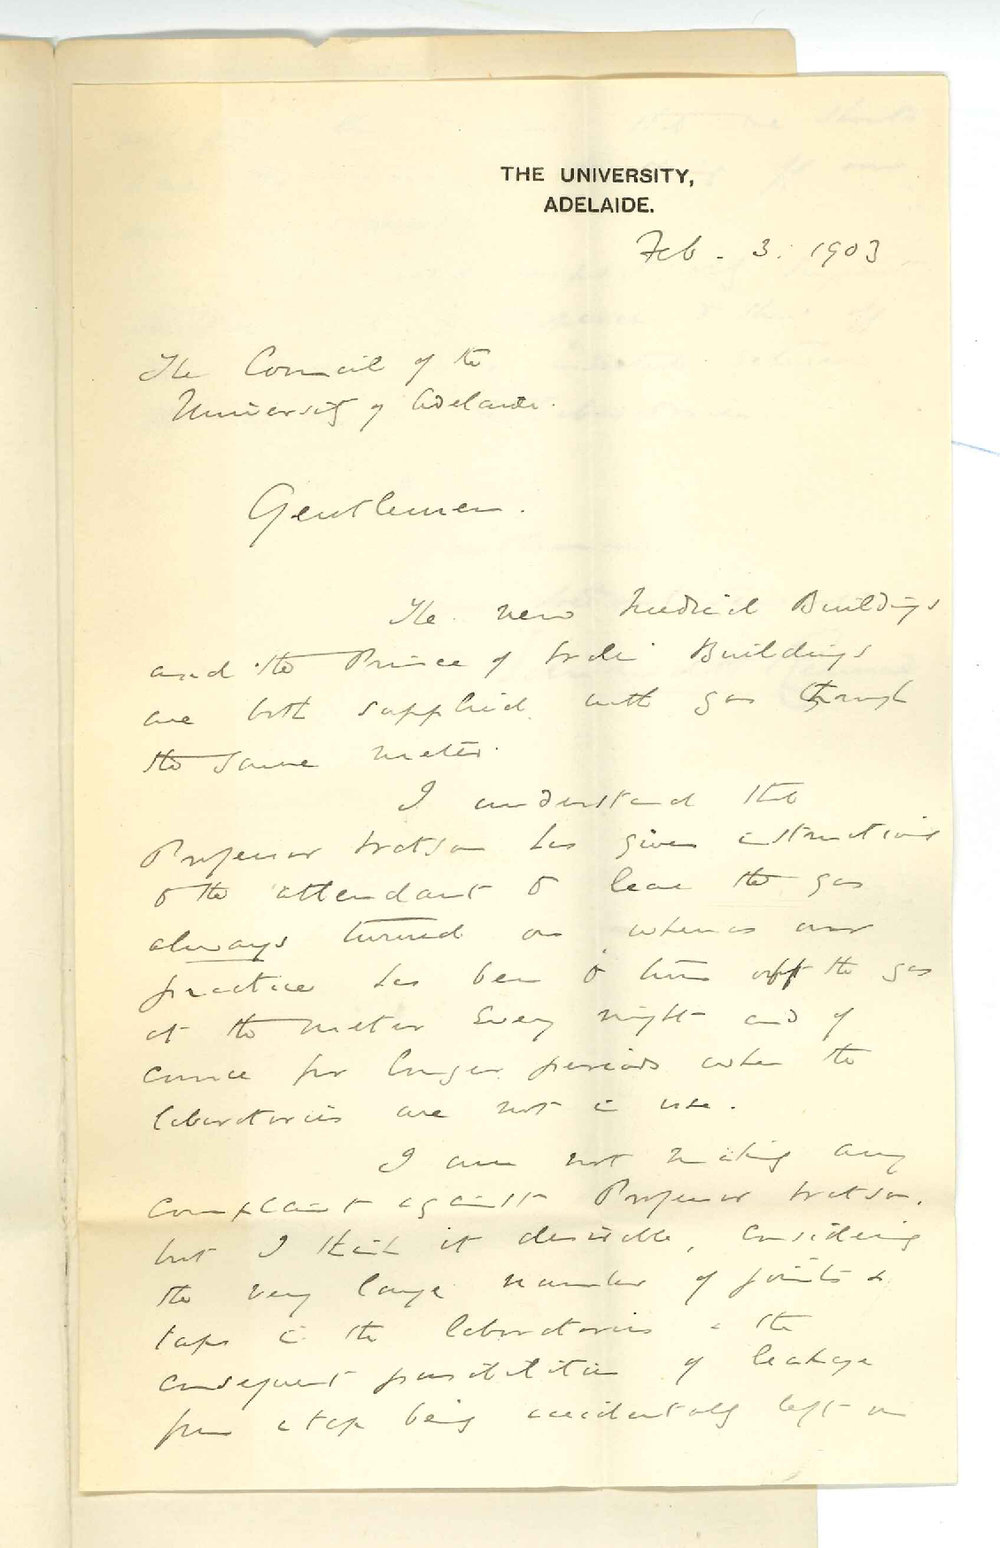 THE UNIVERSITY,
ADELAIDE.
Feb. 3. 1903
The Council of the
University of Adelaide.
Gentlemen.
The new Medical Buildings
and the Prince of Wales Buildings
are both supplied with gas through
the same meter.
I understand that
Professor Watson has given instructions
to the attendant to leave the gas
always turned on whereas our
practice has been to turn off the gas
at the meter every night and of
course for longer periods when the
laboratories are not in use.
I am not making any
complaint against Professor Watson,
but I think it desirable, considering
the very large number of joints &
taps in the laboratories & the
consequent possibilities of leakage
from a tap being accidentally left on